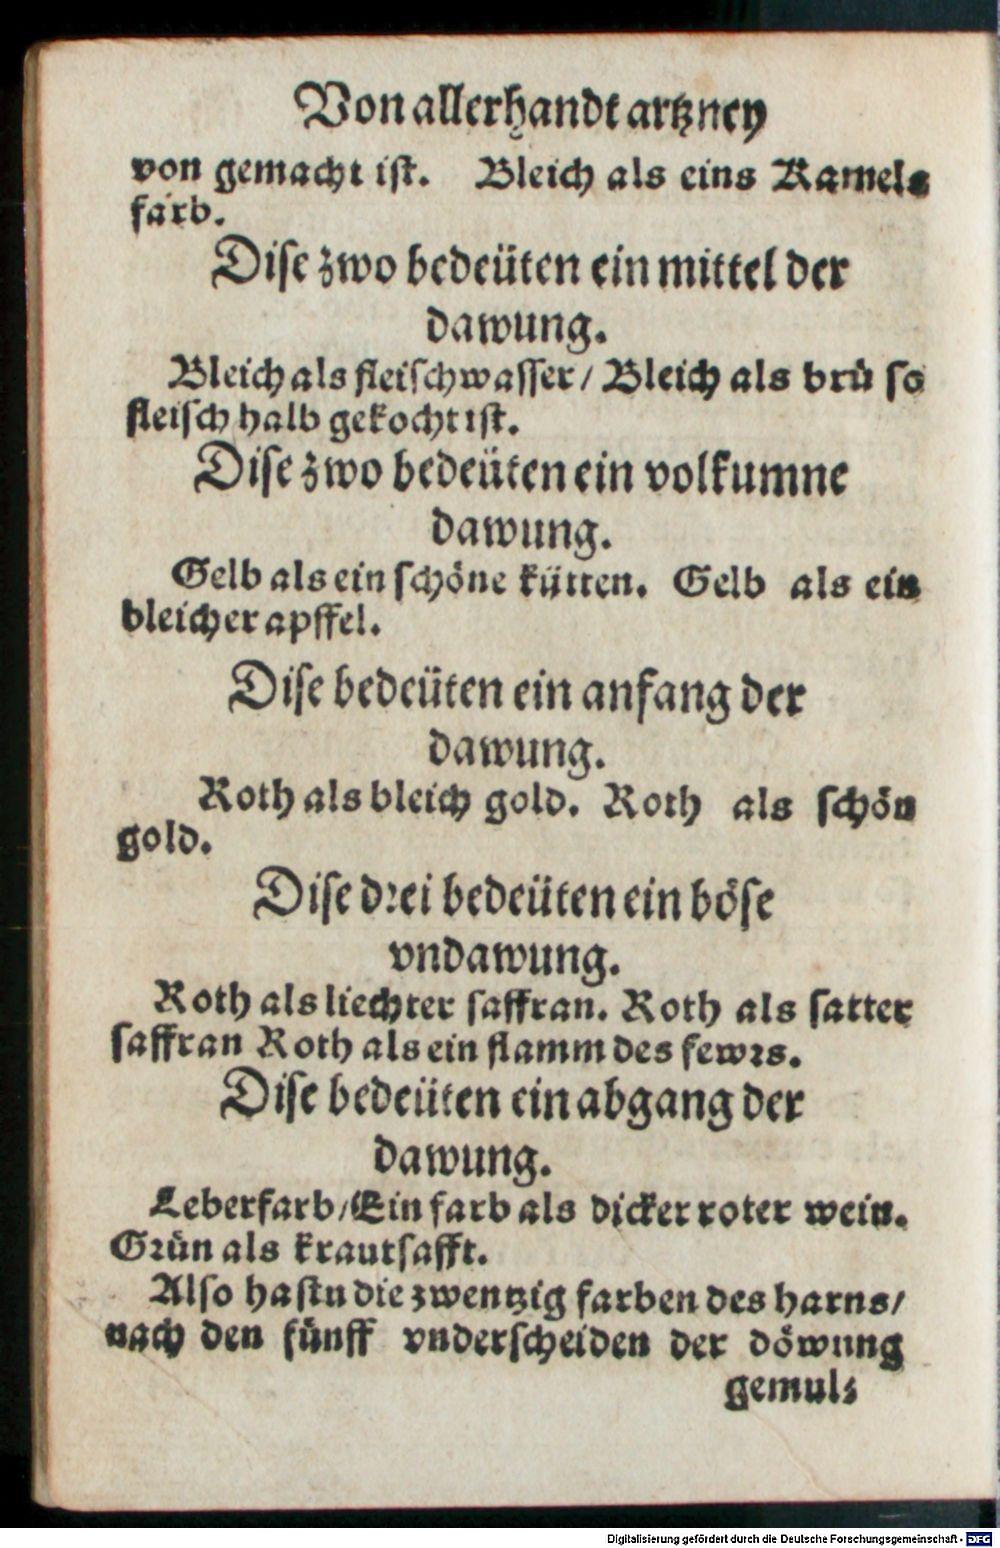 Von allerhandt artzney
von gemacht ist. Bleich als eins Kamels
farb.
Dise zwo bedeüten ein mittel der
dawung.
Bleich als fleischwasser / Bleich als brü so
fleisch halb gekocht ist.
Dise zwo bedeüten ein volkumne
dawung.
Gelb als ein schöne kütten. Gelb als ein
bleicher apffel.
Dise bedeüten ein anfang der
dawung.
Roth als bleich gold. Roth als schön
gold.
Dise drei bedeüten ein böse
vndawung.
Roth als liechter saffran. Roth als satter
saffran Roth als ein flamm des fewrs.
Dise bedeüten ein abgang der
dawung.
Leberfarb / Ein farb als dicker roter wein.
Grün als krautsafft.
Also hastu die zwentzig farben des harns /
nach den fünff vnderscheiden der döwung
gemuls
Digitalisierung gefördert durch die Deutsche Forschungsgemeinschaft - DFG